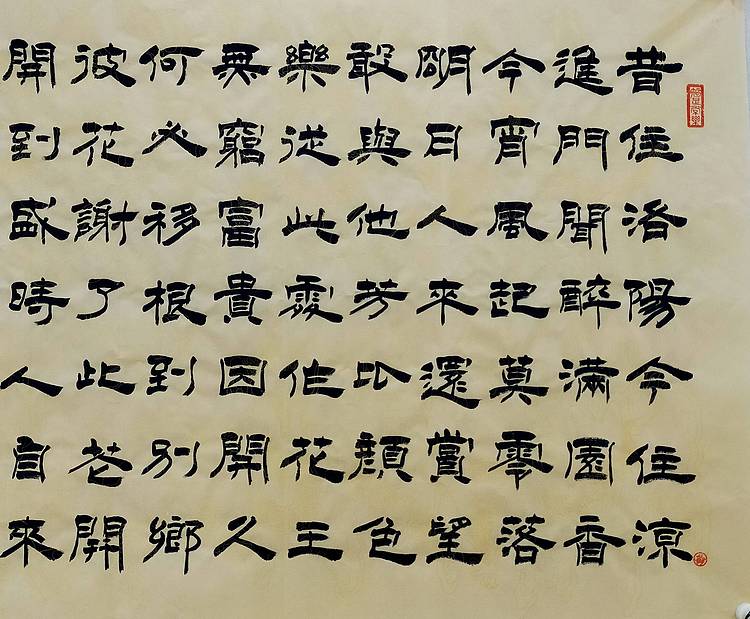 昔住洛陽今住涼
進門聞醉滿園香
今宵風起莫零落
明日人來還賞望
敢與他芳比顏色
樂從此處作花王
無窮富貴因開久
何必移根到別鄉
彼花謝了此花開
開到盛時人自來